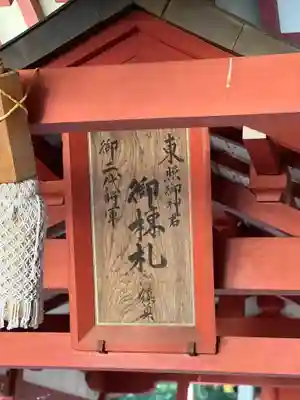 東照御神君
御棟札
御二代将軍